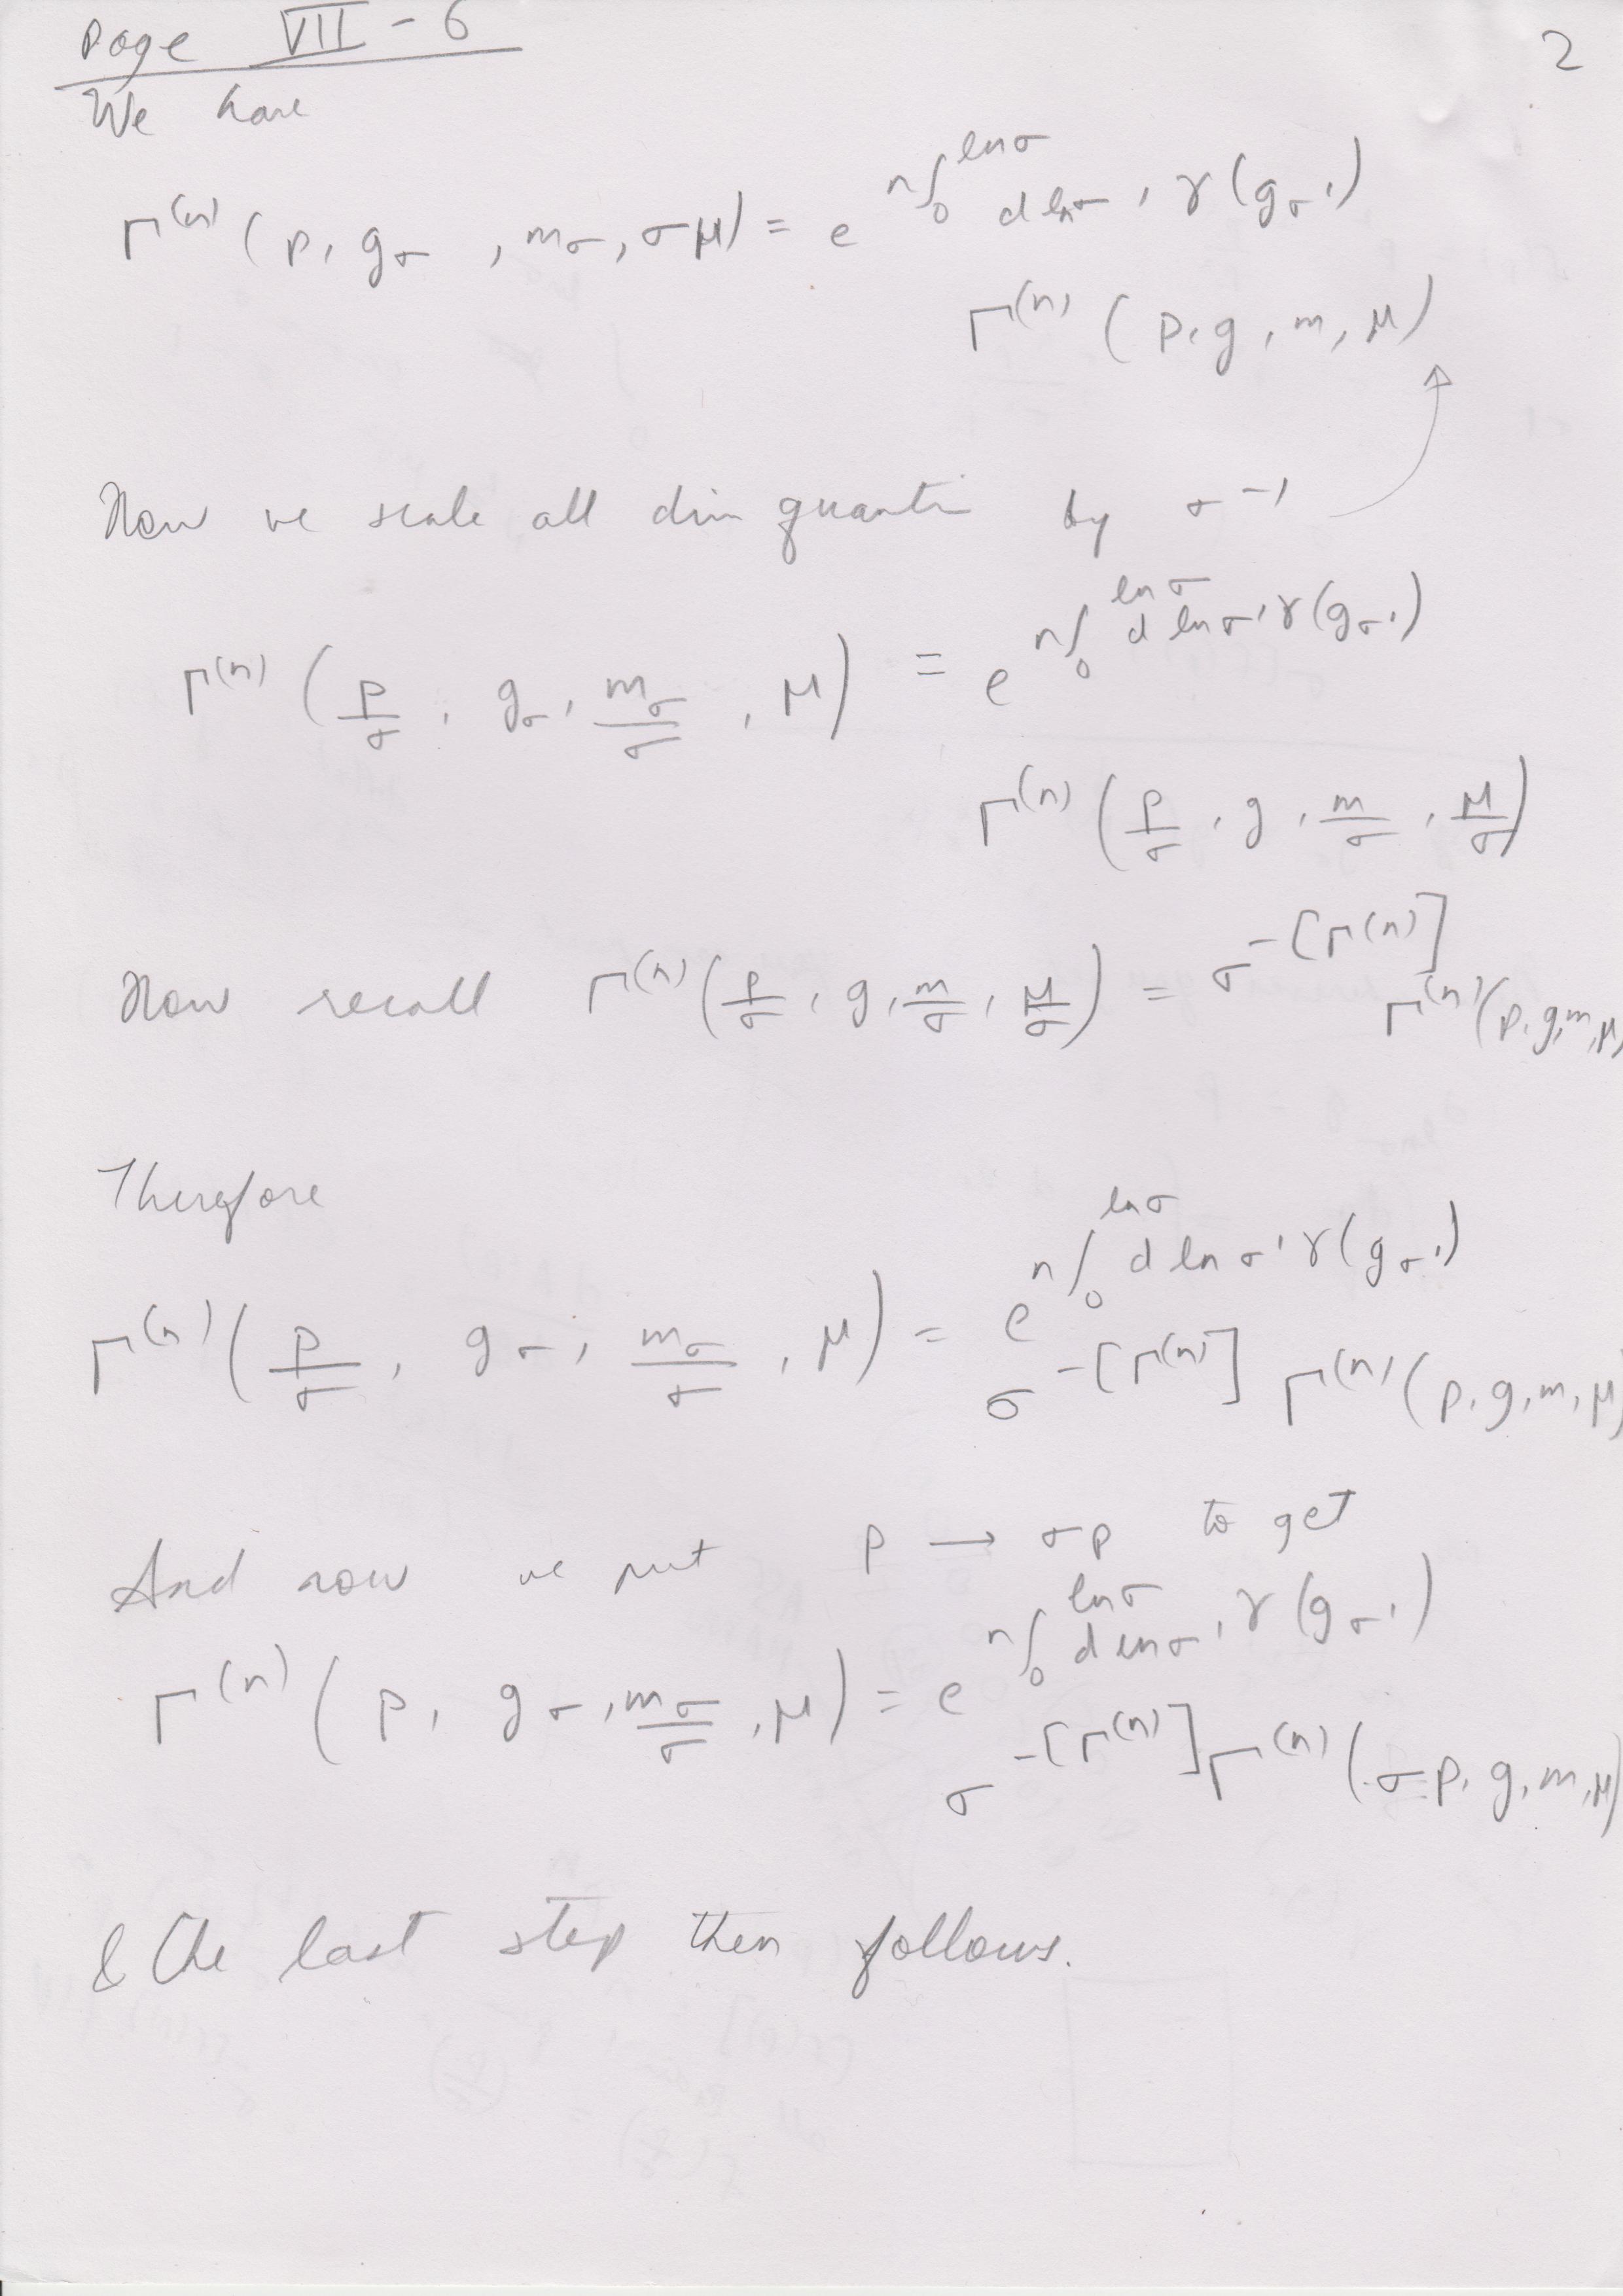 page VII - 6
2
We have
Γ^(n) ( p, g_σ , m_σ, σμ) = e^{n∫_0^{ln σ} d ln σ' γ(g_σ')}
Γ^(n) ( p, g, m, μ)
Now we scale all dim quanti by σ^-1
Γ^(n) ( p/σ , g_σ, m_σ/σ , μ) = e^{n∫_0^{ln σ} d ln σ' γ(g_σ')}
Γ^(n) ( p/σ , g , m/σ , μ/σ )
Now recall Γ^(n) ( p/σ , g, m/σ , μ/σ ) = σ^{-[Γ^(n)]} Γ^(n) (p, g, m, μ)
Therefore
Γ^(n) ( p/σ , g_σ, m_σ/σ , μ) = e^{n∫_0^{ln σ} d ln σ' γ(g_σ')}
σ^{-[Γ^(n)]} Γ^(n) (p, g, m, μ)
And now we put p → σp to get
Γ^(n) ( p, g_σ, m_σ/σ , μ) = e^{n∫_0^{ln σ} d ln σ' γ(g_σ')}
σ^{-[Γ^(n)]} Γ^(n) (σp, g, m, μ)
& the last step then follows.